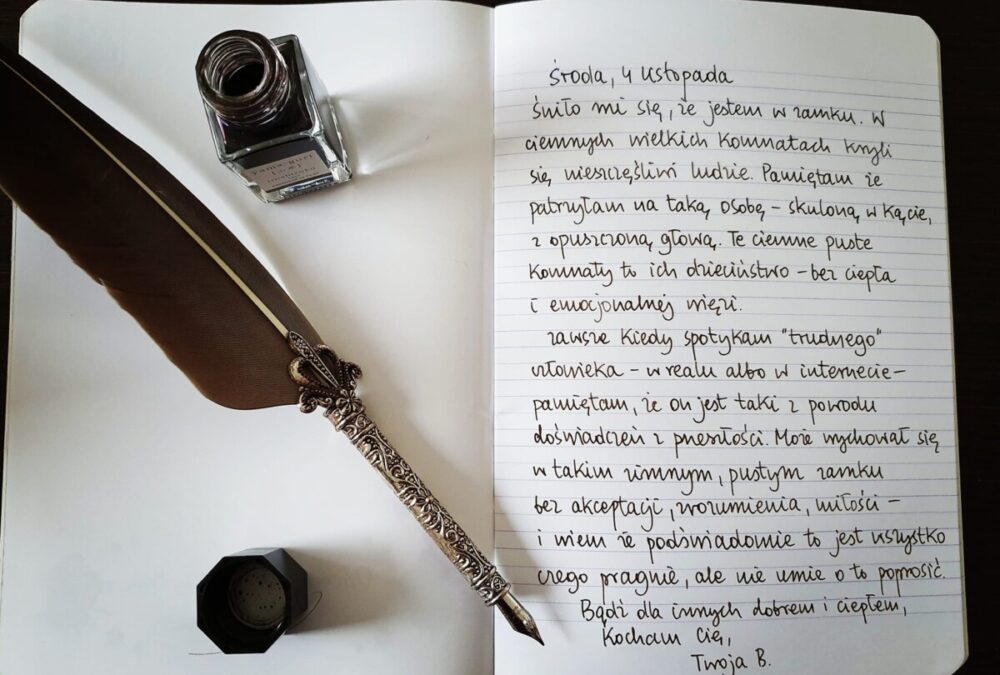 Środa, 4 listopada
śniło mi się, że jestem w zamku. W
ciemnych wielkich komnatach kryli
się nieszczęśliwi ludzie. Pamiętam że
patrzyłam na taką osobę – skuloną w kącie,
z opuszczoną głową. Te ciemne puste
komnaty to ich dzieciństwo – bez ciepła
i emocjonalnej więzi.
Zawsze kiedy spotykam "trudnego"
człowieka – w realu albo w internecie –
pamiętam, że on jest taki z powodu
doświadczeń z przeszłości. Może wychował się
w takim zimnym, pustym zamku
bez akceptacji, zrozumienia, miłości –
i wiem że podświadomie to jest wszystko
czego pragnie, ale nie umie o to poprosić.
Bądź dla innych dobrem i ciepłem,
Kocham Cię,
Twoja B.